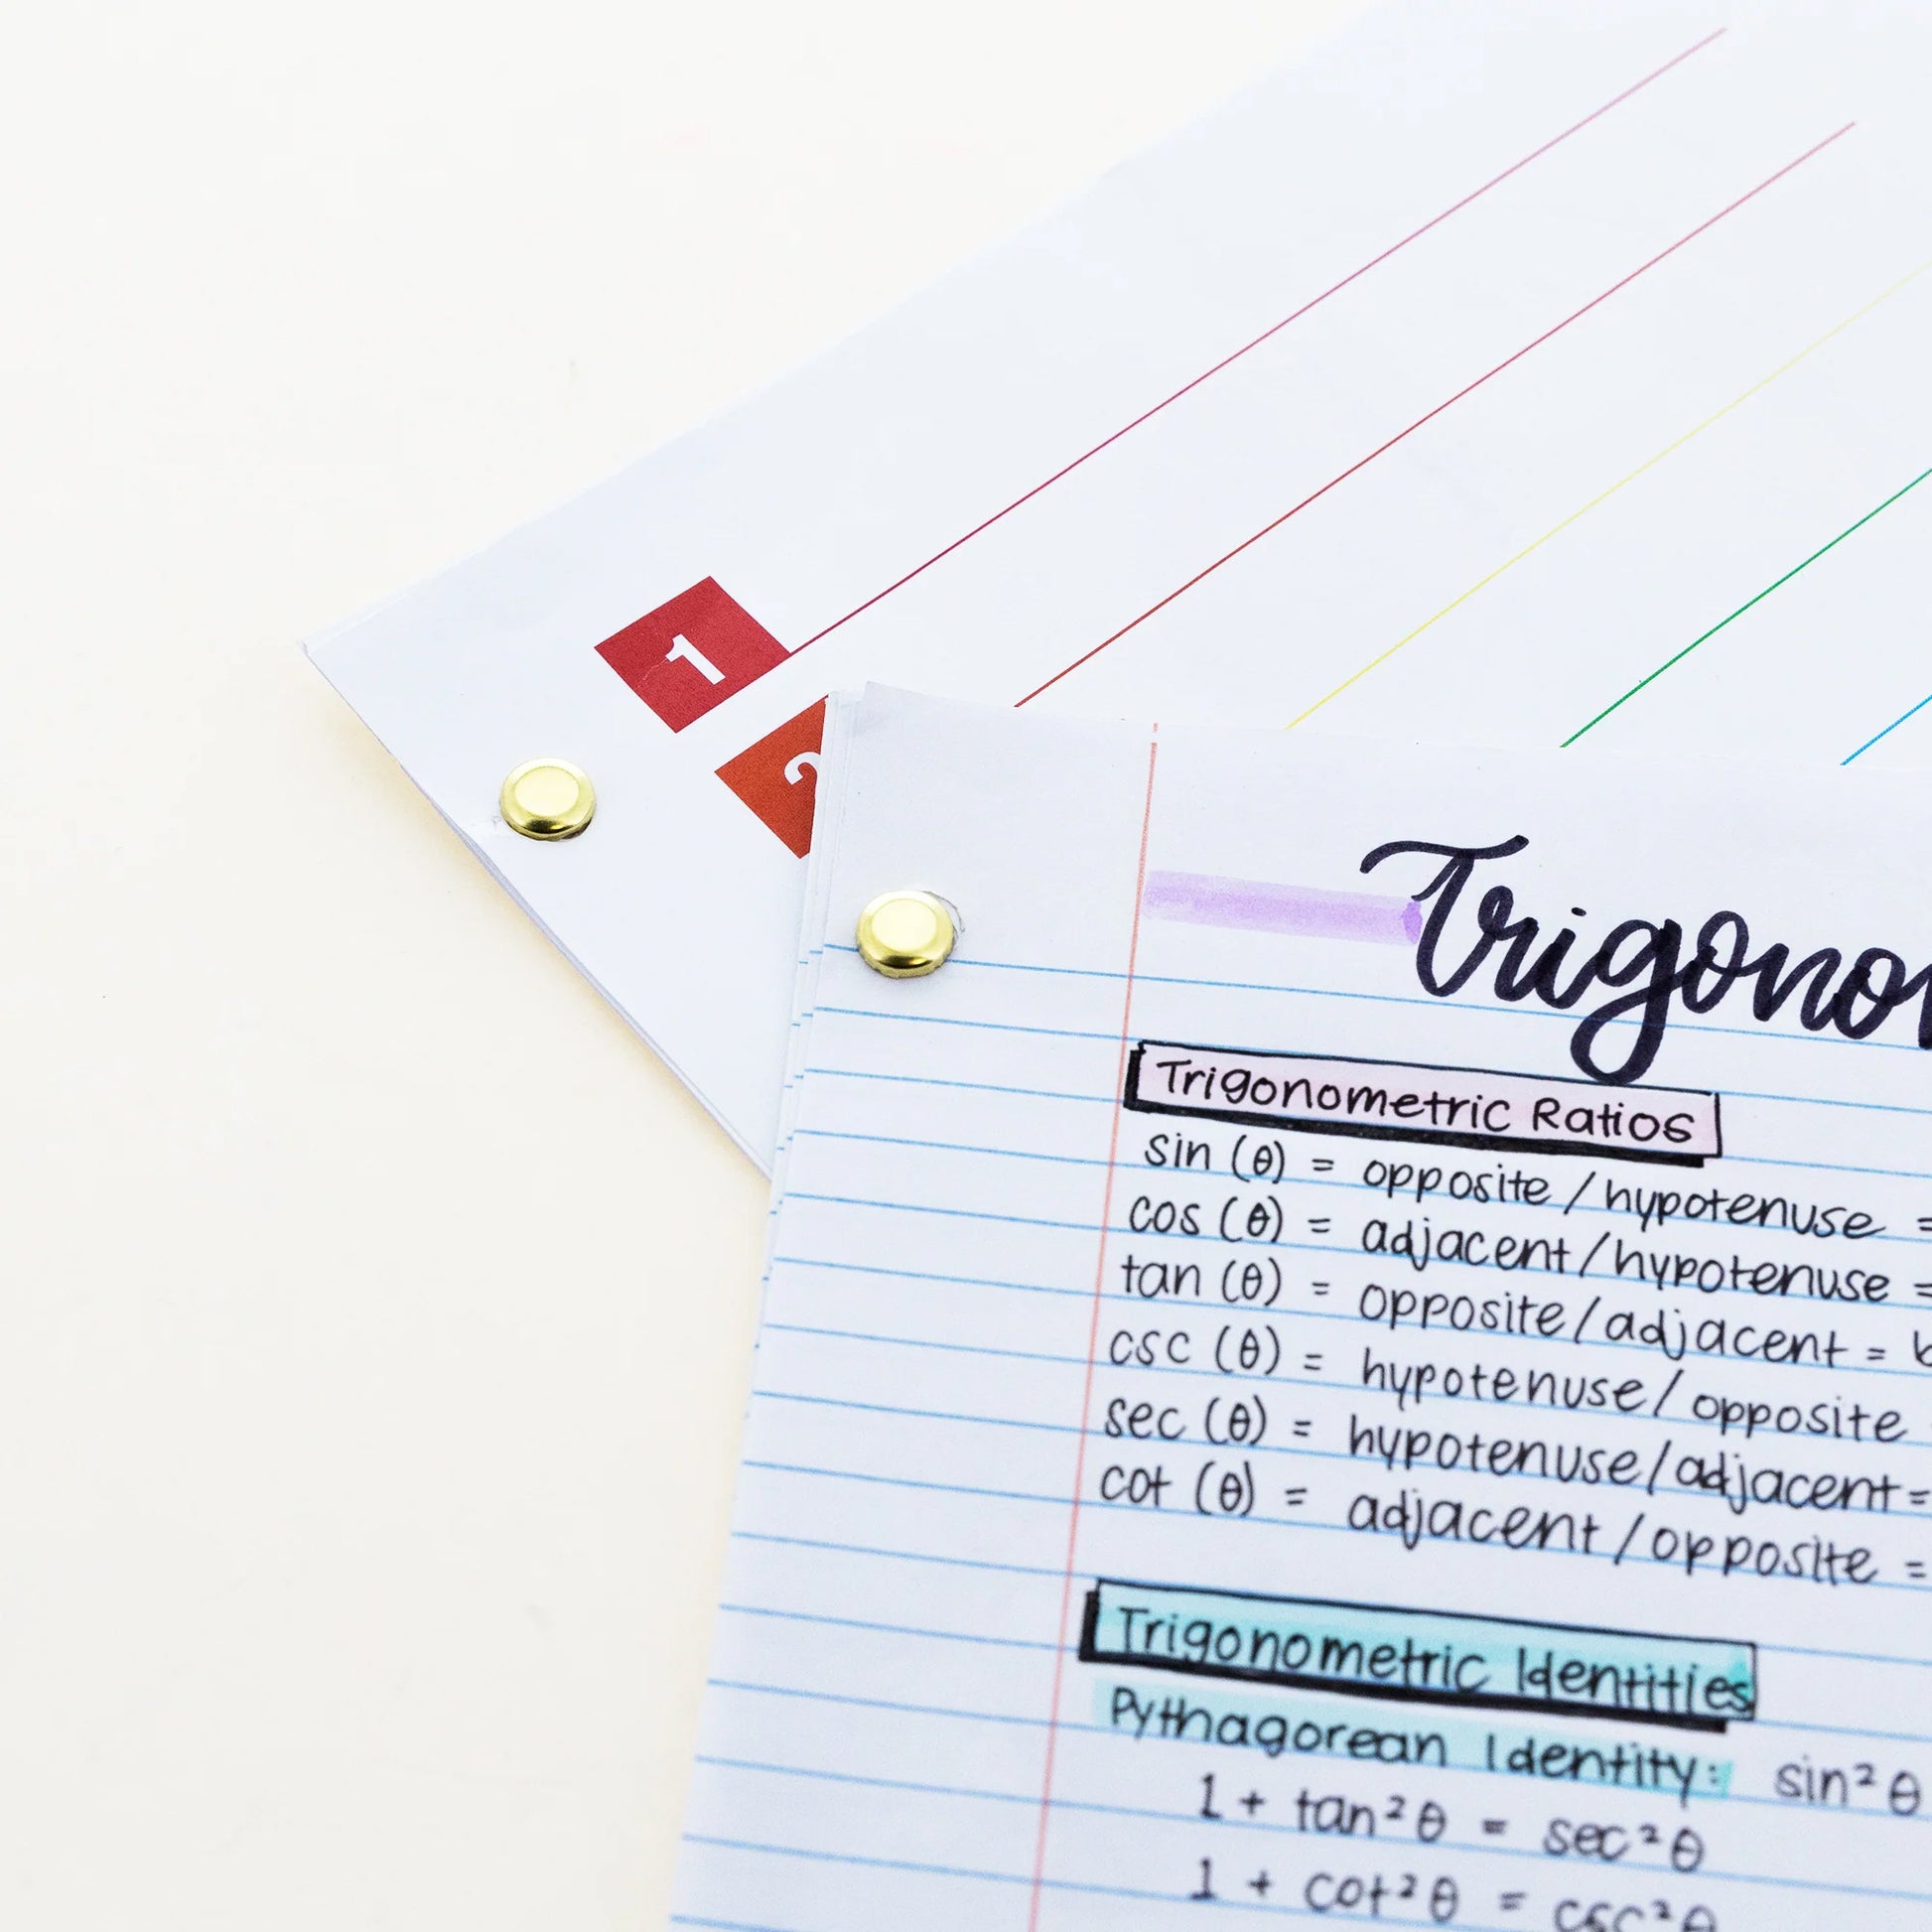 1
2
Trigono
Trigonometric Ratios
sin (θ) = opposite/hypotenuse =
cos (θ) = adjacent/hypotenuse =
tan (θ) = opposite/adjacent = b
csc (θ) = hypotenuse/opposite
sec (θ) = hypotenuse/adjacent=
cot (θ) = adjacent/opposite =
Trigonometric Identities
Pythagorean Identity: sin²θ
1 + tan²θ = sec²θ
1 + cot²θ = csc²θ